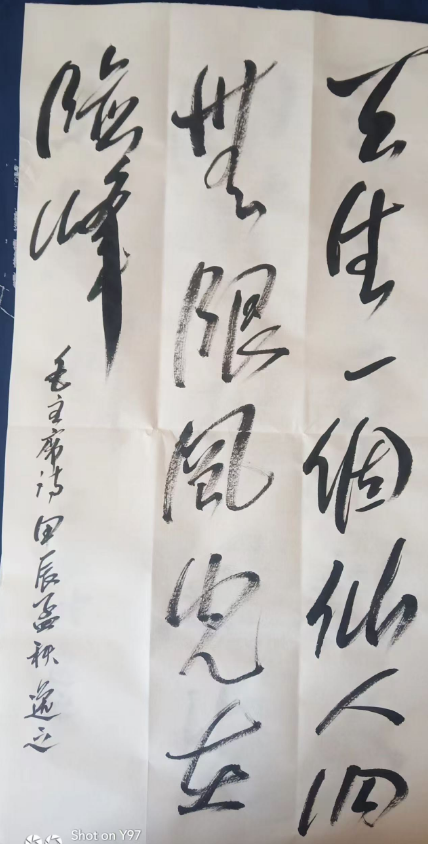 天生一個仙人洞
無限風光在
險峰
毛主席诗 甲辰孟秋 逸之
Shot on Y97